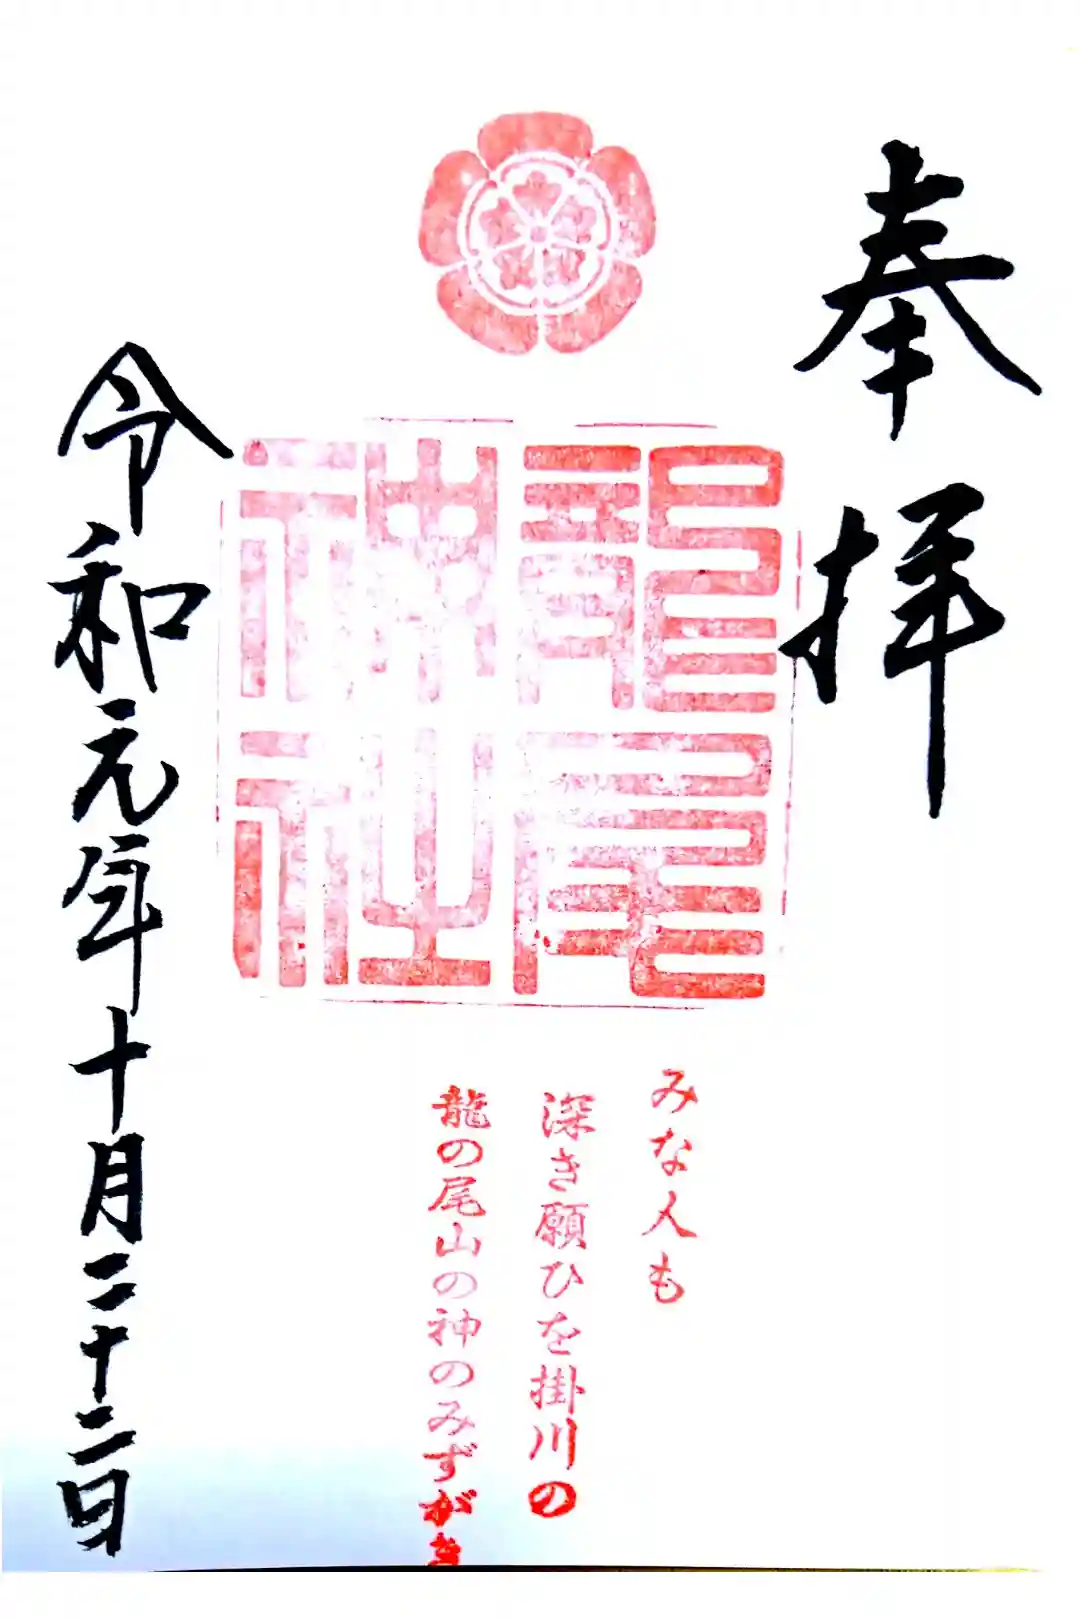 奉拝
龍尾
神社
みな人も
深き願ひを掛川の
龍の尾山の神のみずがき
令和元年十月二十二日